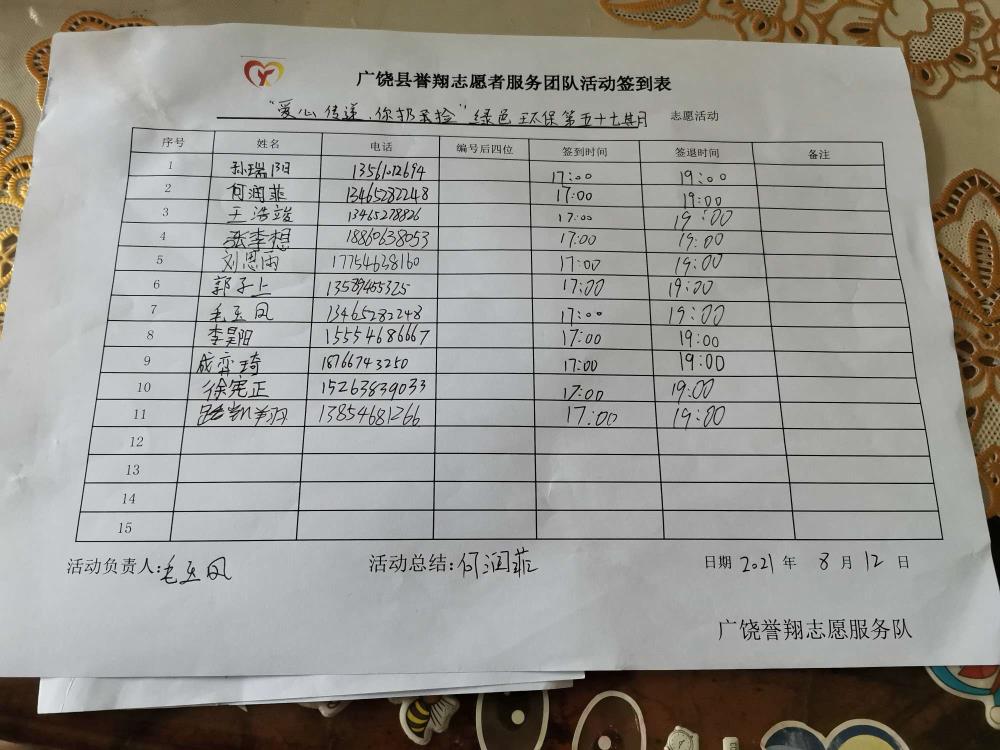 广饶县誉翔志愿者服务团队活动签到表
"爱心传递、你扔我捡"绿色环保第五十七期 志愿活动
序号 姓名 电话 编号后四位 签到时间 签退时间 备注
1 孙瑞阳 13561012694 17:00 19:00
2 何润菲 13465282248 17:00 19:00
3 王浩竣 13465278826 17:00 19:00
4 张李想 18860638053 17:00 19:00
5 刘思雨 17754638160 17:00 19:00
6 郭子上 13589455325 17:00 19:00
7 毛玉凤 13465282248 17:00 19:00
8 李昊阳 15554686667 17:00 19:00
9 成弈琦 18766743250 17:00 19:00
10 徐宪正 15263839033 17:00 19:00
11 路凯翔 13854681266 17:00 19:00
12
13
14
15
活动负责人:毛玉凤 活动总结:何润菲 日期 2021 年 8 月 12 日
广饶誉翔志愿服务队